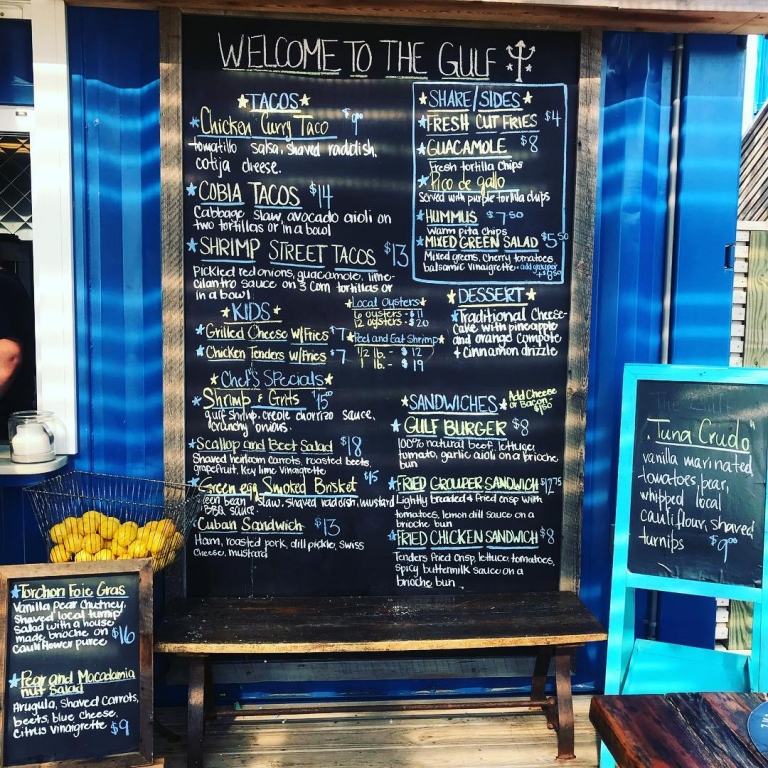 WELCOME TO THE GULF
TACOS
Chicken Curry Taco $9.00
tomatillo salsa, shaved raddish,
cotija cheese.
COBIA TACOS $14
Cabbage slaw, avocado aioli on
two tortillas or in a bowl
SHRIMP STREET TACOS $13
Pickled red onions, guacamole, lime-
cilantro sauce on 3 corn tortillas or
in a bowl.
KIDS
Grilled Cheese w/Fries $7
Chicken Tenders w/Fries $7
Local Oysters
6 oysters - $11
12 oysters - $20
Peel and Eat Shrimp
1/2 lb. - $12
1 lb. - $19
Chef's Specials
Shrimp & Grits $15
gulf shrimp, creole chorizo sauce,
crunchy onions.
Scallop and Beet Salad $18
Shaved heirloom carrots, roasted beets,
grapefruit, Key lime vinaigrette
Green egg Smoked Brisket $15
Green bean slaw, shaved raddish, mustard
BBQ sauce
Cuban Sandwich $13
Ham, roasted pork, dill pickle, swiss
cheese, mustard
SHARE/SIDES
FRESH CUT FRIES $4
GUACAMOLE $8
Fresh tortilla chips
Pico de gallo
Served with purple tortilla chips
HUMMUS $7.50
Warm pita chips
MIXED GREEN SALAD $5.50
Mixed greens, cherry tomatoes
balsamic vinaigrette - add grouper
+$8.50
DESSERT
Traditional Cheese-
cake with pineapple
and orange compote
& cinnamon drizzle
SANDWICHES
Add Cheese
or Bacon
GULF BURGER $8
100% natural beef, lettuce,
tomato, garlic aioli on a brioche
bun
FRIED GROUPER SANDWICH $12.75
Lightly breaded & fried crisp with
tomatoes, lemon dill sauce on a
brioche bun
FRIED CHICKEN SANDWICH $8
Tenders fried crisp, lettuce, tomatoes,
spicy buttermilk sauce on a
brioche bun
Torchon Foie Gras
Vanilla pear chutney,
Shaved local turnip
Salad with a house
made brioche on $16
cauliflower puree
Pear and Macadamia
nut Salad
Arugula, Shaved carrots,
beets, blue cheese,
Citrus vinaigrette $9
Tuna Crudo
vanilla marinated
tomatoes, pear,
whipped local
cauliflour, shaved
turnips $9.00